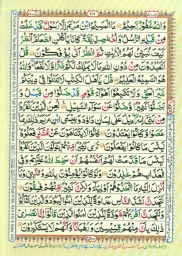 وَاللّٰهُ غَفُوْرٌ رَّحِيْمٌ مَا الْمَسِيْحُ ابْنُ مَرْيَمَ اِلَّا رَسُوْلٌ
قَدْ خَلَتْ مِنْ قَبْلِهِ الرُّسُلُ وَاُمُّهٗ صِدِّيْقَةٌ كَانَا يَاْكُلٰنِ الطَّعَامَ اُنْظُرْ
كَيْفَ نُبَيِّنُ لَهُمُ الْاٰيٰتِ ثُمَّ انْظُرْ اَنّٰى يُؤْفَكُوْنَ
قُلْ اَتَعْبُدُوْنَ مِنْ دُوْنِ اللّٰهِ مَا لَا يَمْلِكُ لَكُمْ ضَرًّا وَّلَا نَفْعًا وَاللّٰهُ
هُوَ السَّمِيْعُ الْعَلِيْمُ قُلْ يٰٓاَهْلَ الْكِتٰبِ لَا تَغْلُوْا فِيْ دِيْنِكُمْ
غَيْرَ الْحَقِّ وَلَا تَتَّبِعُوْٓا اَهْوَآءَ قَوْمٍ قَدْ ضَلُّوْا مِنْ قَبْلُ
وَاَضَلُّوْا كَثِيْرًا وَّضَلُّوْا عَنْ سَوَآءِ السَّبِيْلِ لُعِنَ الَّذِيْنَ كَفَرُوْا
مِنْۢ بَنِيْٓ اِسْرَآءِيْلَ عَلٰى لِسَانِ دَاوٗدَ وَعِيْسَى ابْنِ مَرْيَمَ ذٰلِكَ بِمَا
عَصَوْا وَّكَانُوْا يَعْتَدُوْنَ كَانُوْا لَا يَتَنَاهَوْنَ عَنْ مُّنْكَرٍ فَعَلُوْهُ
لَبِئْسَ مَا كَانُوْا يَفْعَلُوْنَ تَرٰى كَثِيْرًا مِّنْهُمْ يَتَوَلَّوْنَ الَّذِيْنَ كَفَرُوْا
لَبِئْسَ مَا قَدَّمَتْ لَهُمْ اَنْفُسُهُمْ اَنْ سَخِطَ اللّٰهُ عَلَيْهِمْ وَفِي
الْعَذَابِ هُمْ خٰلِدُوْنَ وَلَوْ كَانُوْا يُؤْمِنُوْنَ بِاللّٰهِ وَالنَّبِيِّ وَمَآ
اُنْزِلَ اِلَيْهِ مَا اتَّخَذُوْهُمْ اَوْلِيَآءَ وَلٰكِنَّ كَثِيْرًا مِّنْهُمْ فٰسِقُوْنَ
لَتَجِدَنَّ اَشَدَّ النَّاسِ عَدَاوَةً لِّلَّذِيْنَ اٰمَنُوا الْيَهُوْدَ وَالَّذِيْنَ اَشْرَكُوْا
وَلَتَجِدَنَّ اَقْرَبَهُمْ مَّوَدَّةً لِّلَّذِيْنَ اٰمَنُوا الَّذِيْنَ قَالُوْٓا اِنَّا نَصٰرٰى
ذٰلِكَ بِاَنَّ مِنْهُمْ قِسِّيْسِيْنَ وَرُهْبَانًا وَّاَنَّهُمْ لَا يَسْتَكْبِرُوْنَ